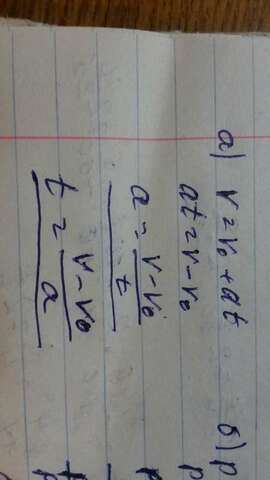 а) v = v₀ + at
at = v - v₀
a = \frac{v - v₀}{t}
t = \frac{v - v₀}{a}
б) p
p